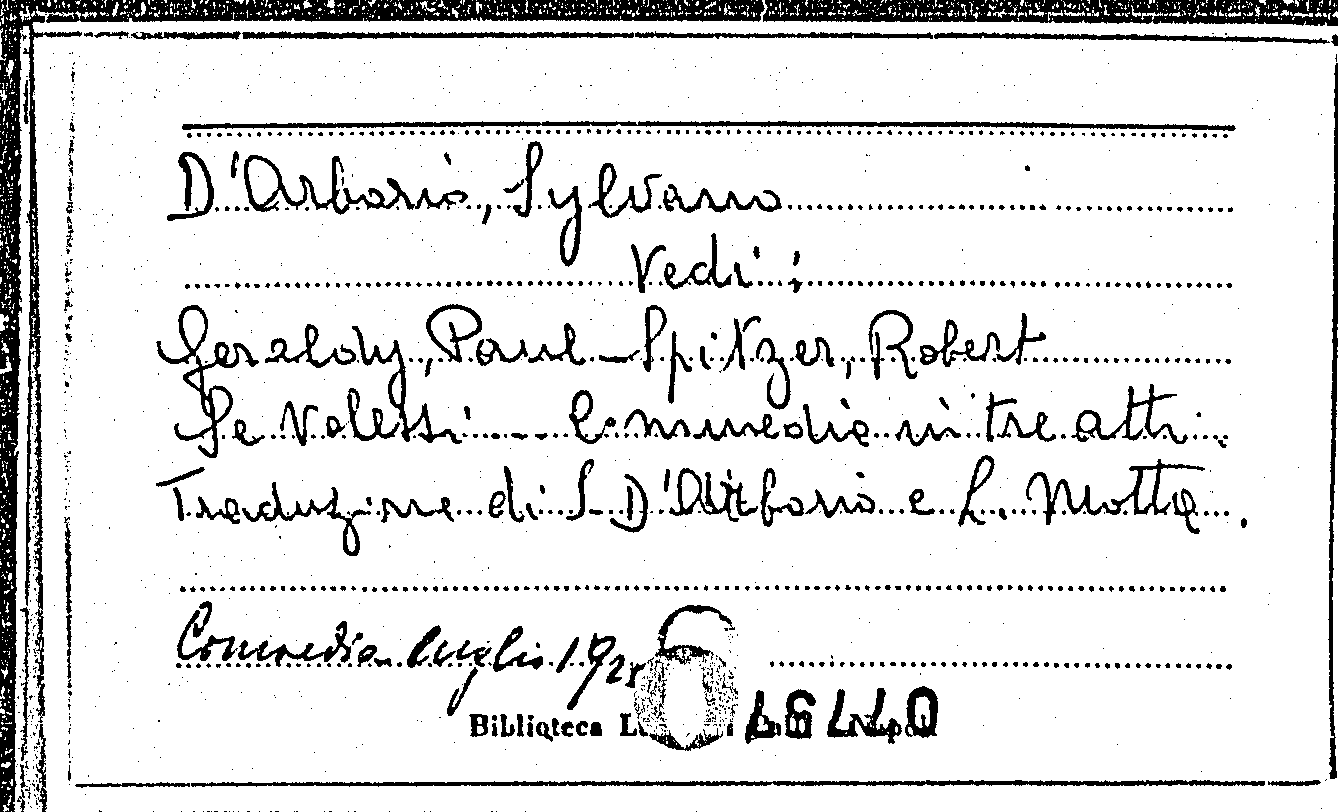 D'Arborio, Sylvano
Vedi:
Geraldy, Paul - Spitzer, Robert
Se Volessi... Commedia in tre atti.
Traduzione di S. D'Arborio e L. Motta.
Comoedia luglio
Biblioteca Napoli